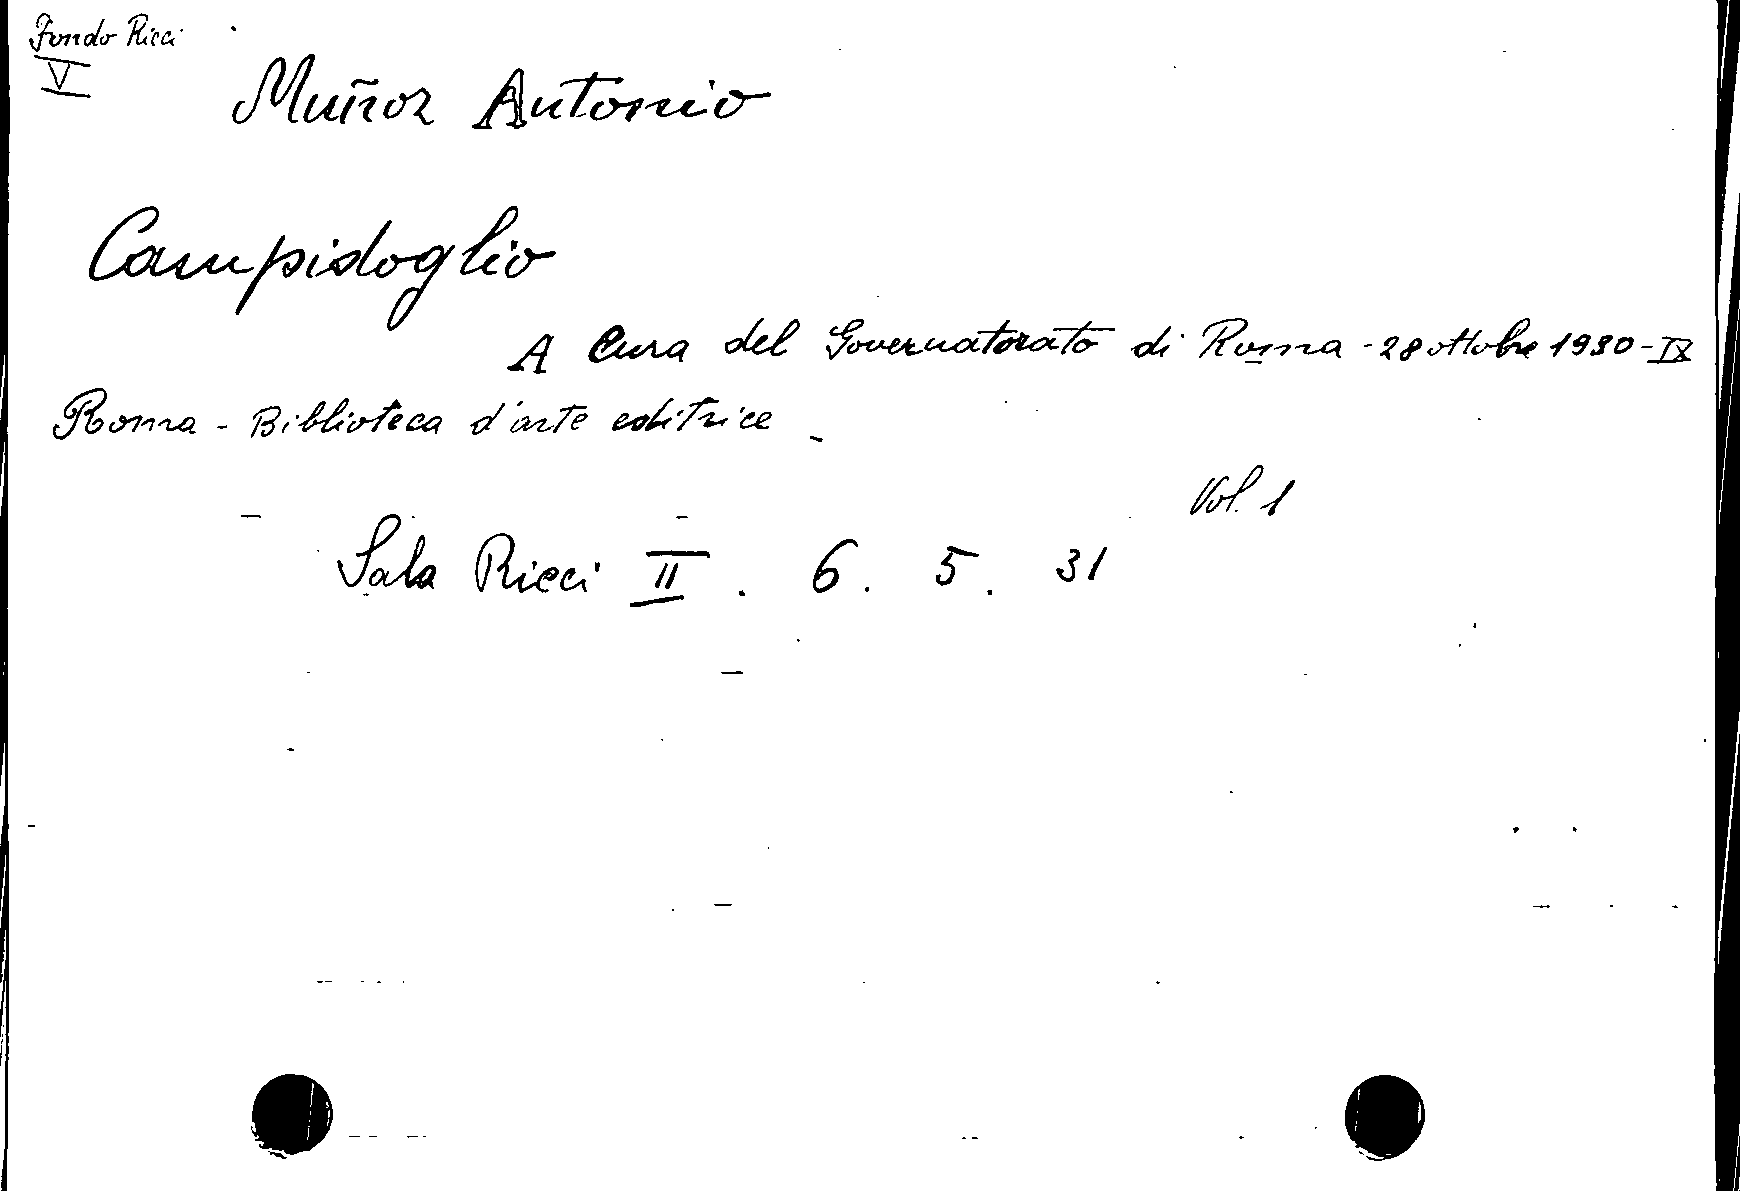 Fondo Ricci
V
Muñoz Antonio
Campidoglio
A cura del Governatorato di Roma - 28 ottobre 1930 - IX
Roma - Biblioteca d'arte editrice -
Vol. 1
Sala Ricci II . 6 . 5 . 31